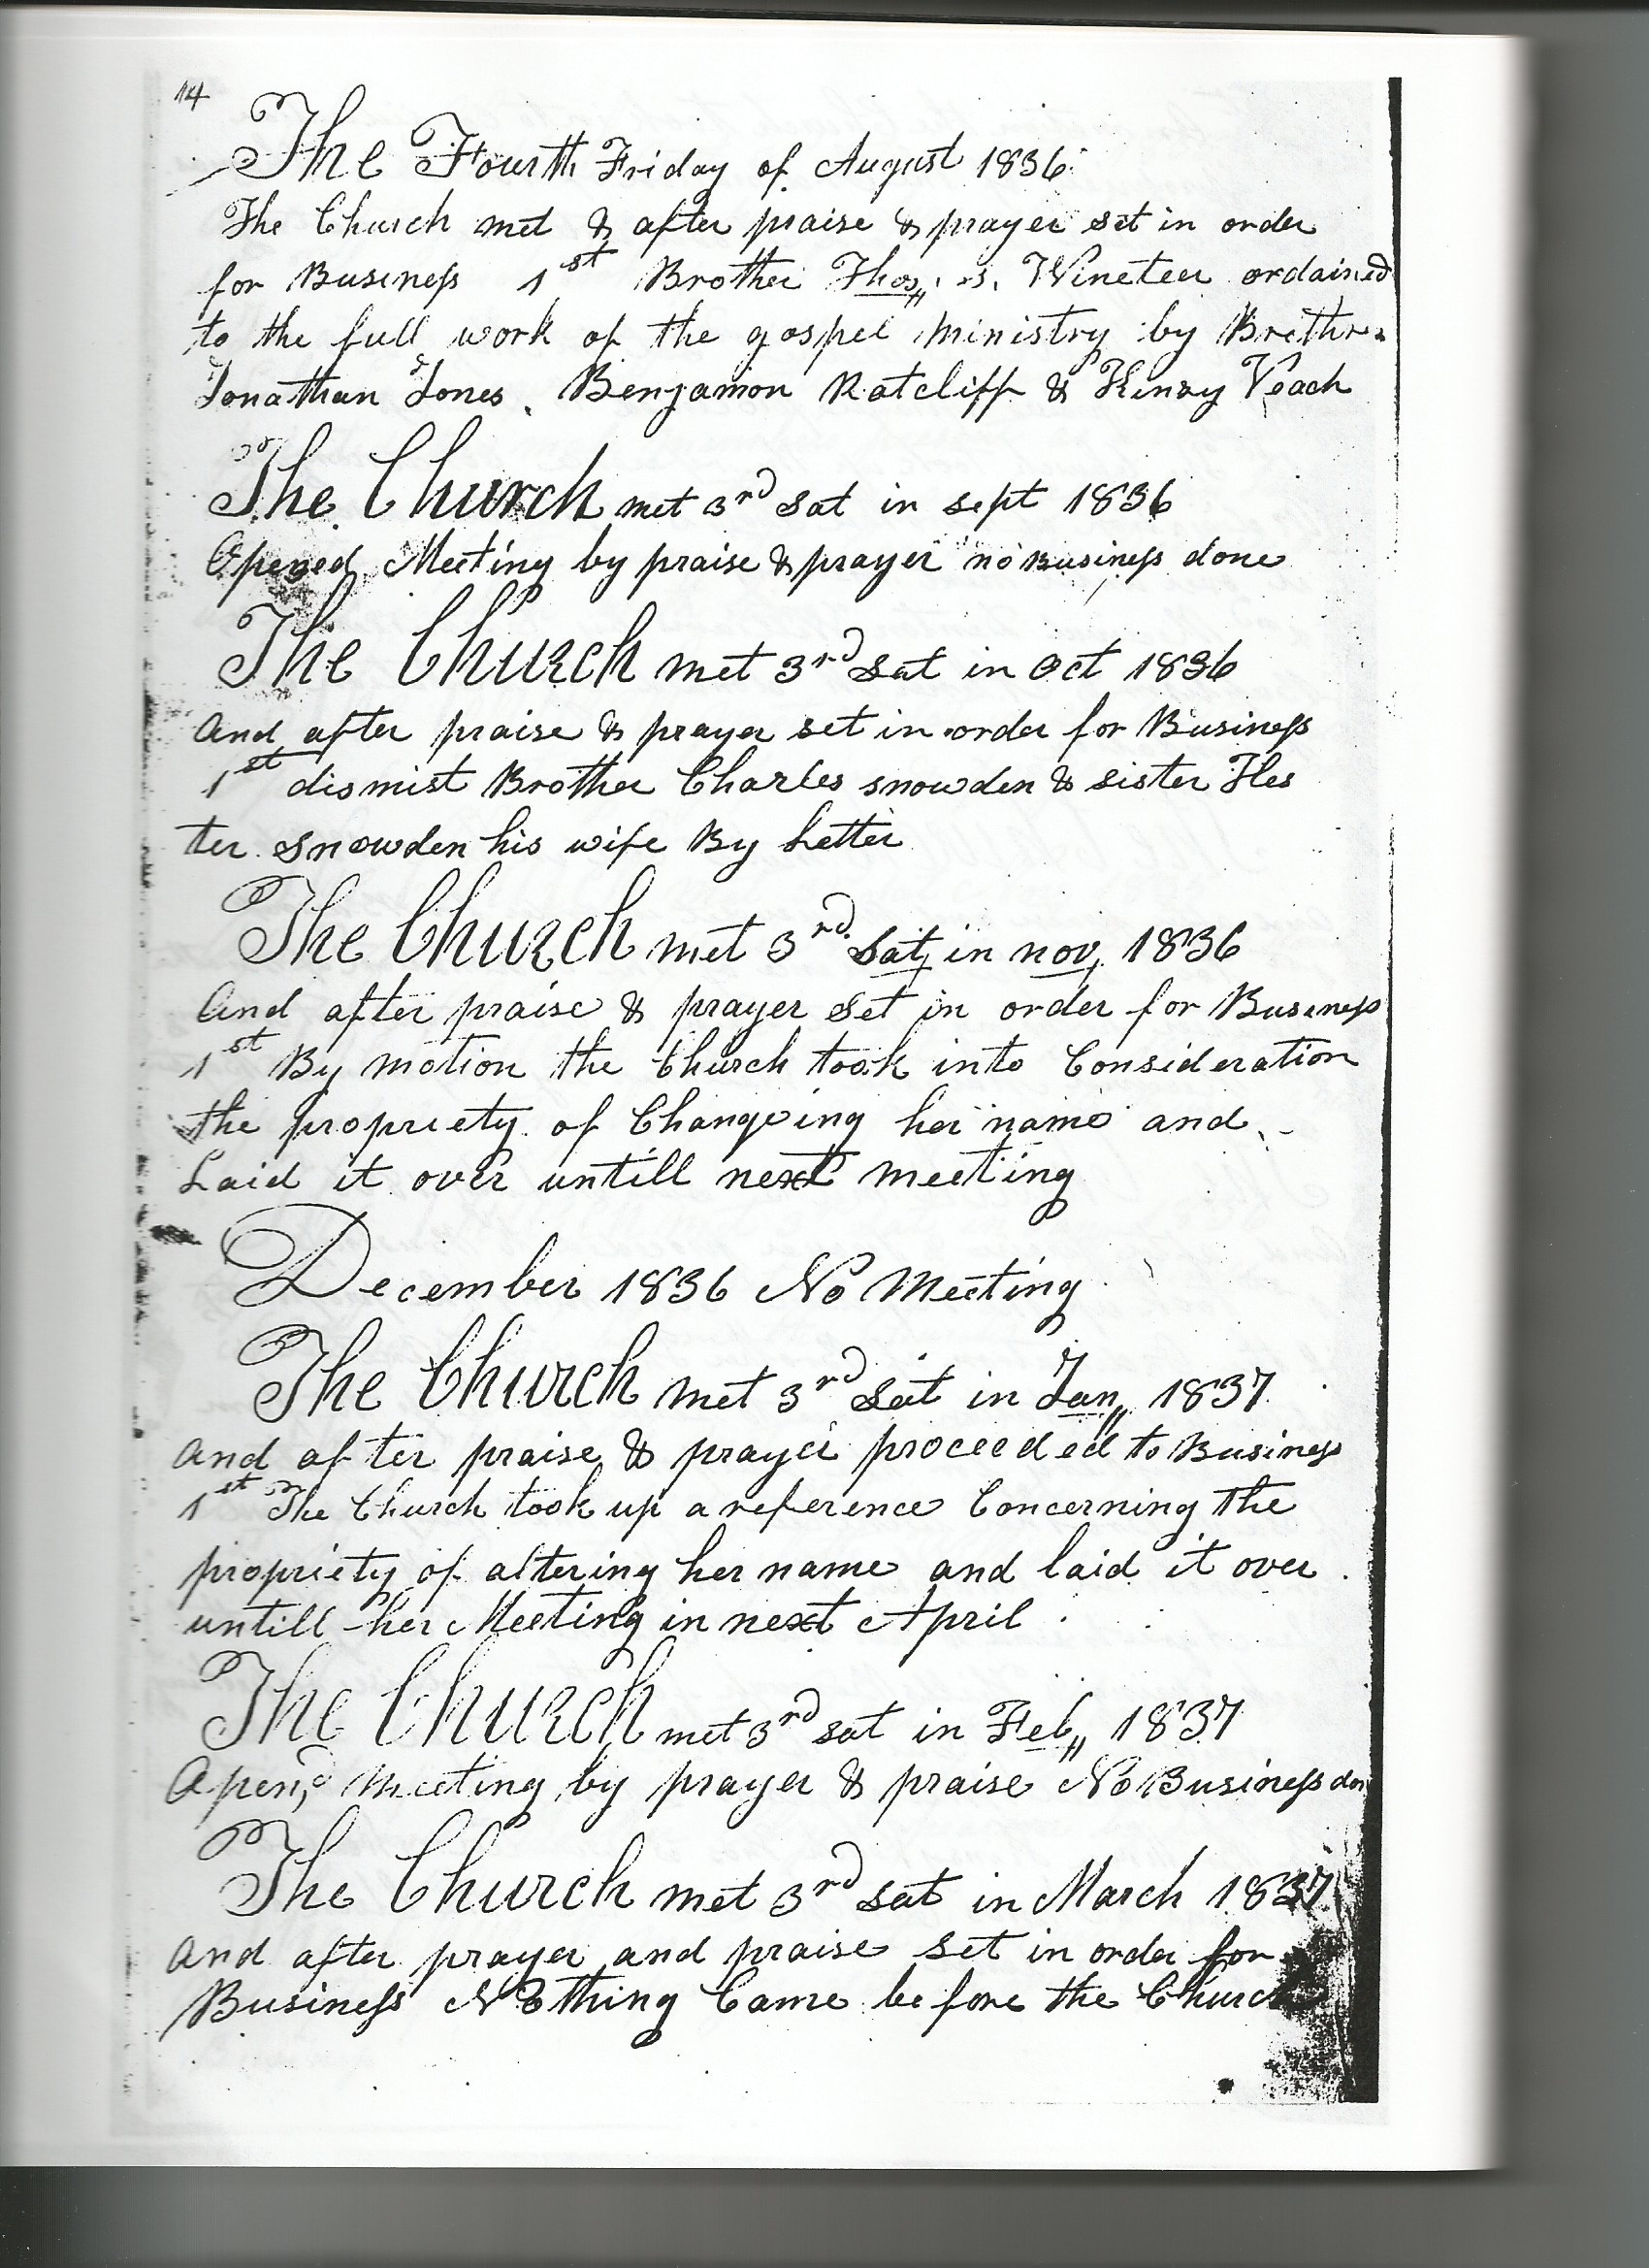 14
The Fourth Friday of August 1836
The Church met & after praise & prayer set in order
for Business 1st Brother Thos,, s. Wineteer ordained
to the full work of the gospel ministry by Brethren
Jonathan Jones. Benjamon Ratcliff & Henry Veach
The Church met 3rd Sat in sept 1836
Opened Meeting by praise & prayer no Business done
The Church met 3rd Sat in Oct 1836
And after praise & prayer set in order for Business
1st dismist Brother Charles snowden & sister Hes
ter Snowden his wife By Letter
The Church met 3rd Sat, in nov, 1836
And after praise & prayer Set in order for Business
1st By motion the Church took into Consideration
the propriety of Changeing her name and
Laid it over untill next meeting
December 1836 No Meeting
The Church met 3rd Sat in Jan,, 1837
And after praise & prayer proceeded to Business
1st The Church took up a reference Concerning the
propriety of altering her name and laid it over
untill her Meeting in next April
The Church met 3rd sat in Feb,, 1837
Open,d Meeting by prayer & praise No Business don
The Church met 3rd sat in March 1837
And after prayer and praise set in order for
Business Nothing Came before the Church